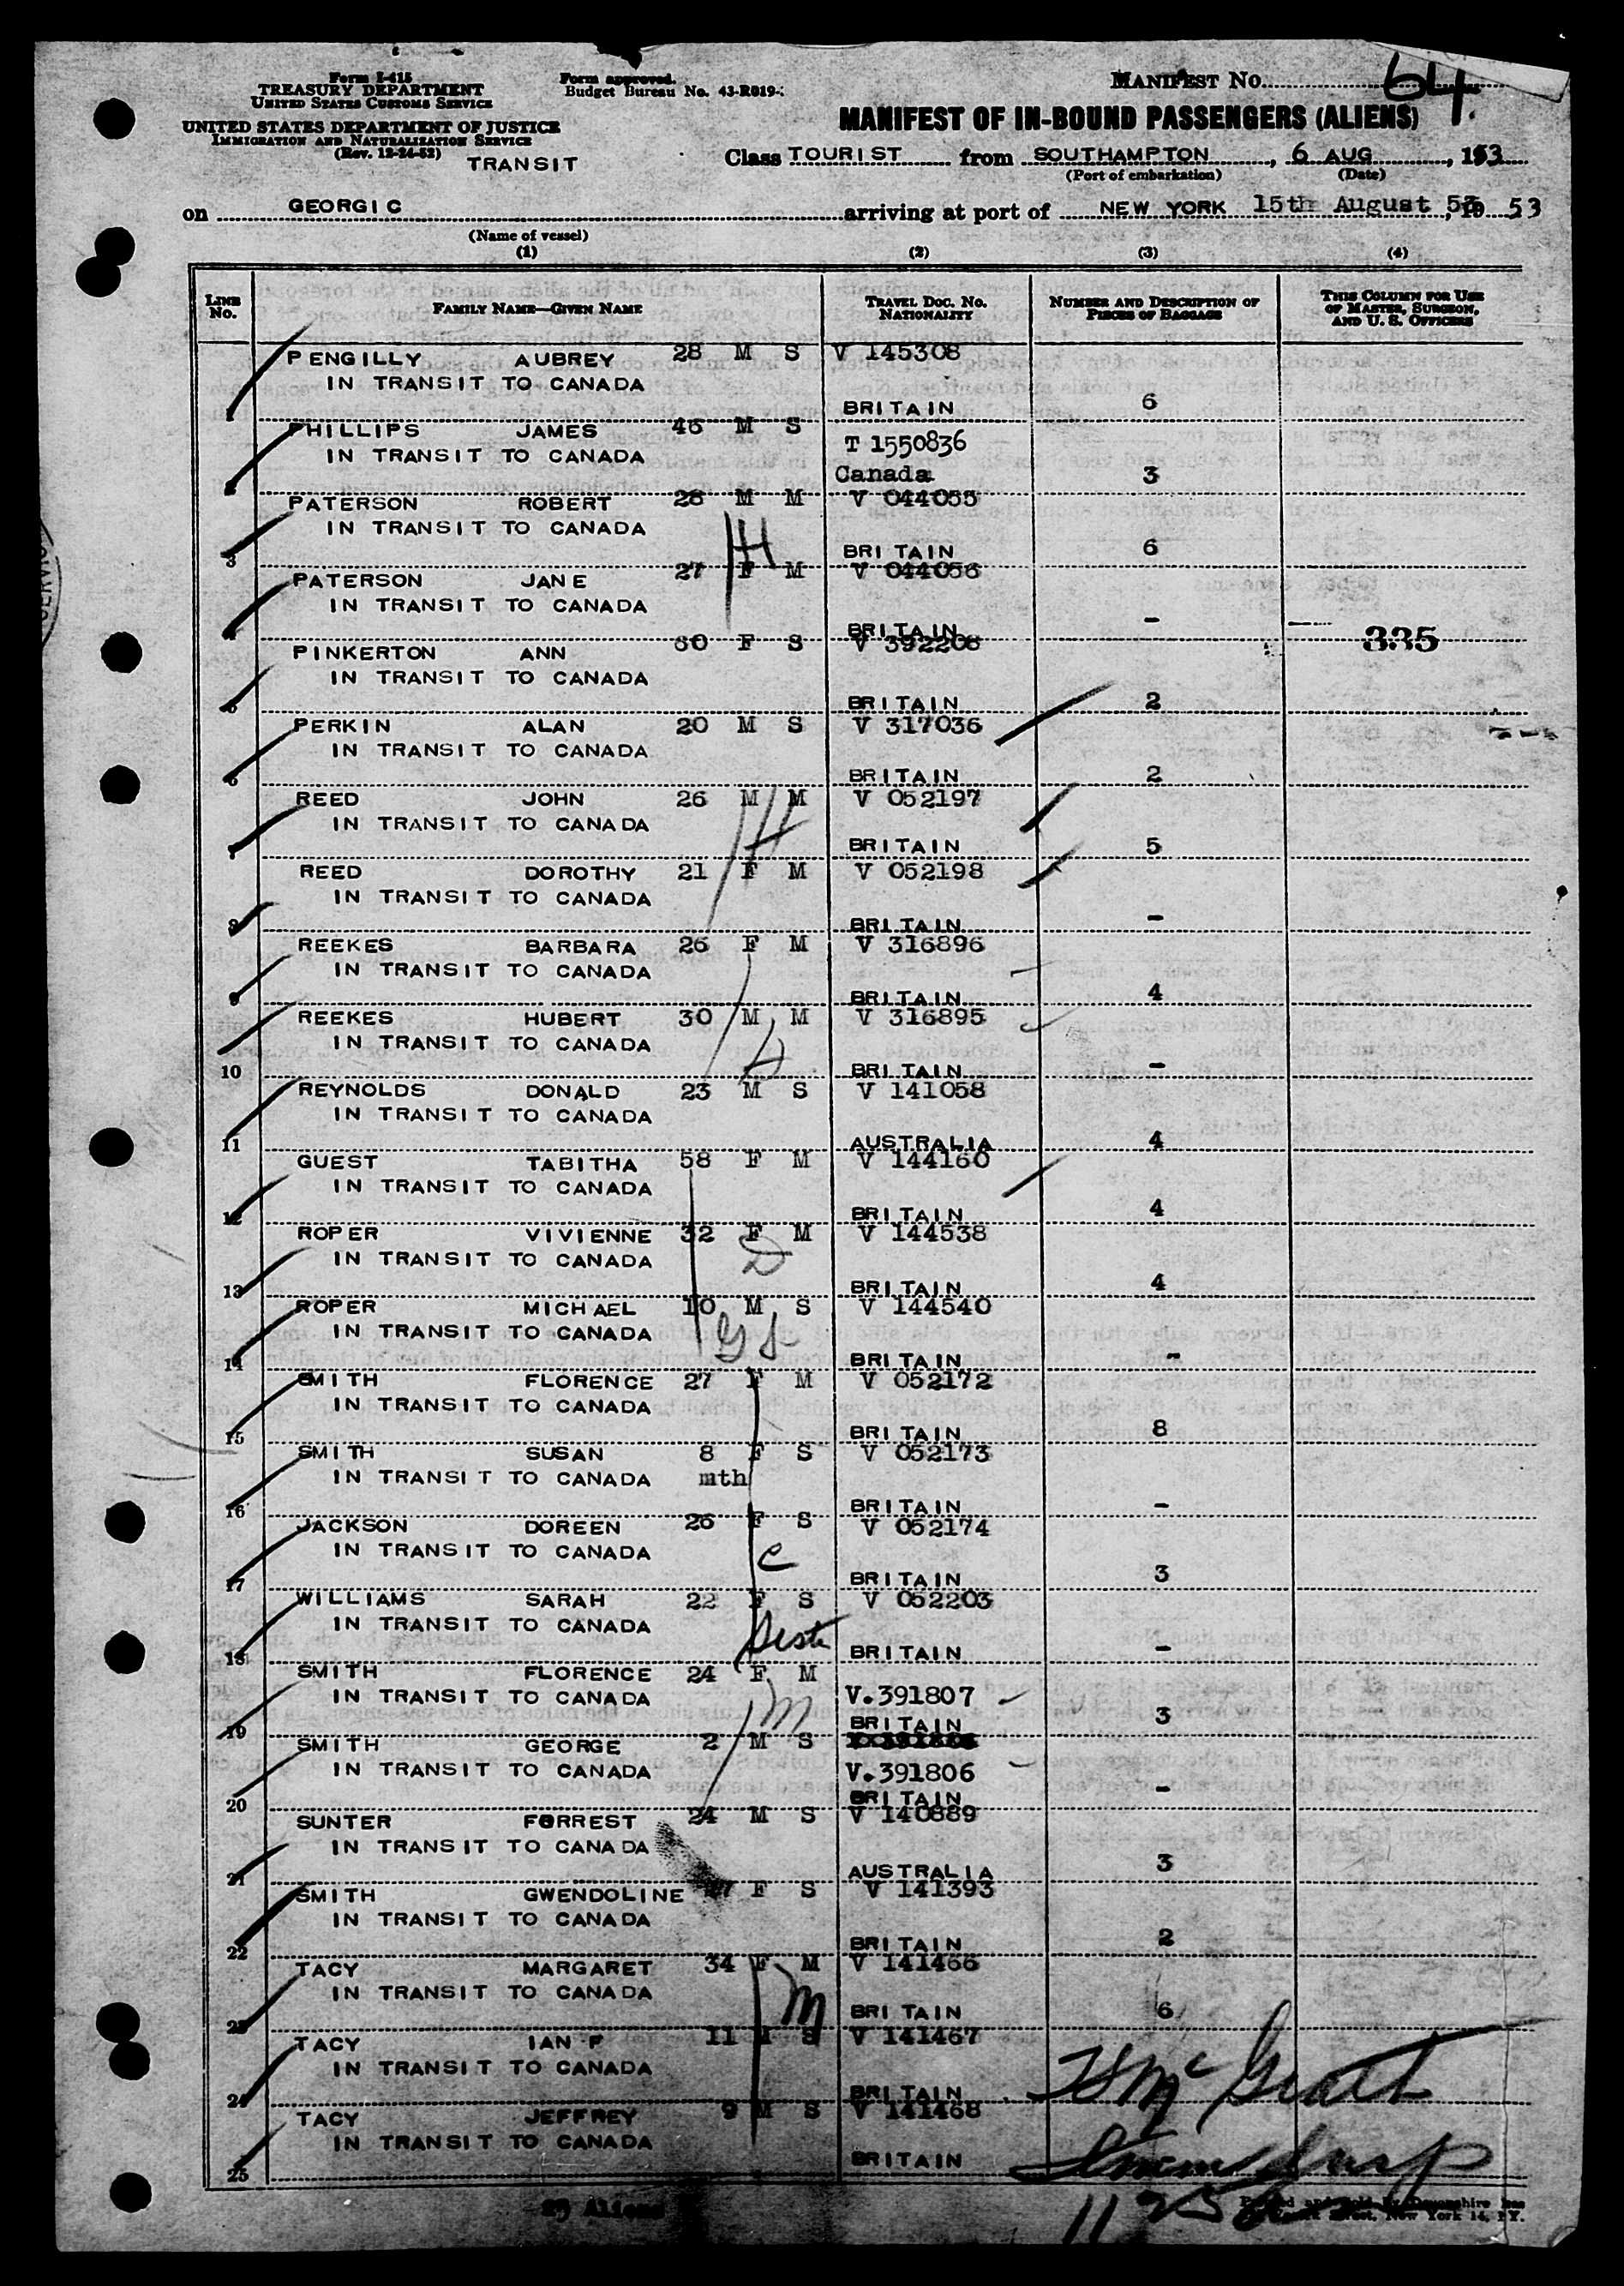 Form I-415
TREASURY DEPARTMENT
UNITED STATES CUSTOMS SERVICE
UNITED STATES DEPARTMENT OF JUSTICE
IMMIGRATION AND NATURALIZATION SERVICE
(Rev. 12-24-52)
TRANSIT
Form approved.
Budget Bureau No. 43-R019-
MANIFEST No. 64
MANIFEST OF IN-BOUND PASSENGERS (ALIENS)
Class TOURIST from SOUTHAMPTON, 6 AUG, 1953
(Port of embarkation) (Date)
on GEORGIC arriving at port of NEW YORK 15th August 53, 19 53
(Name of vessel)
(1) (2) (3) (4)
LINE No. FAMILY NAME—GIVEN NAME TRAVEL DOC. NO. NATIONALITY NUMBER AND DESCRIPTION OF PIECES OF BAGGAGE THIS COLUMN FOR USE OF MASTER, SURGEON, AND U. S. OFFICERS
PENGILLY AUBREY 28 M S V 145308
IN TRANSIT TO CANADA
1 BRITAIN 6
PHILLIPS JAMES 46 M S
IN TRANSIT TO CANADA T 1550836
2 Canada 3
PATERSON ROBERT 28 M M V 044055
IN TRANSIT TO CANADA
3 BRITAIN 6
H
PATERSON JANE 27 F M V 044056
IN TRANSIT TO CANADA
4 BRITAIN -
335
PINKERTON ANN 60 F S V 392208
IN TRANSIT TO CANADA
5 BRITAIN 2
PERKIN ALAN 20 M S V 317036
IN TRANSIT TO CANADA
6 BRITAIN 2
REED JOHN 26 M M V 052197
IN TRANSIT TO CANADA
7 BRITAIN 5
H
REED DOROTHY 21 F M V 052198
IN TRANSIT TO CANADA
8 BRITAIN -
REEKES BARBARA 26 F M V 316896
IN TRANSIT TO CANADA
9 BRITAIN 4
REEKES HUBERT 30 M M V 316895
IN TRANSIT TO CANADA
10 BRITAIN -
REYNOLDS DONALD 23 M S V 141058
IN TRANSIT TO CANADA
11 AUSTRALIA 4
GUEST TABITHA 58 F M V 144160
IN TRANSIT TO CANADA
12 BRITAIN 4
ROPER VIVIENNE 32 F M V 144538
IN TRANSIT TO CANADA D
13 BRITAIN 4
ROPER MICHAEL 10 M S V 144540
IN TRANSIT TO CANADA GS
14 BRITAIN -
SMITH FLORENCE 27 F M V 052172
IN TRANSIT TO CANADA
15 BRITAIN 8
SMITH SUSAN 8 F S V 052173
IN TRANSIT TO CANADA mth
16 BRITAIN -
JACKSON DOREEN 26 F S V 052174
IN TRANSIT TO CANADA C
17 BRITAIN 3
WILLIAMS SARAH 22 F S V 052203
IN TRANSIT TO CANADA
18 BRITAIN -
SMITH FLORENCE 24 F M
IN TRANSIT TO CANADA M V.391807
19 BRITAIN 3
SMITH GEORGE 2 M S
IN TRANSIT TO CANADA V.391806
20 BRITAIN -
SUNTER FORREST 24 M S V 140889
IN TRANSIT TO CANADA
21 AUSTRALIA 3
SMITH GWENDOLINE F S V 141393
IN TRANSIT TO CANADA
22 BRITAIN 2
TACY MARGARET 34 F M V 141466
IN TRANSIT TO CANADA M
23 BRITAIN 6
TACY IAN F 11 S V 141467
IN TRANSIT TO CANADA
24 BRITAIN
TACY JEFFREY 9 M S V 141468
IN TRANSIT TO CANADA
25 BRITAIN
Immn Insp
Aliens
New York 14, N.Y.